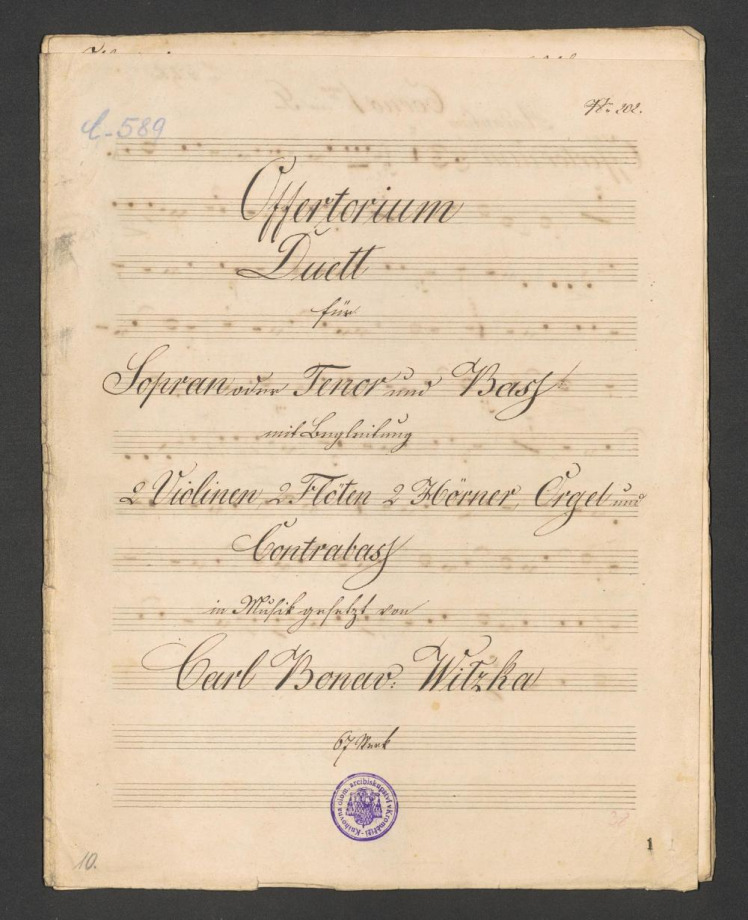 C-589
N. 202.
Offertorium
Duett
für
Sopran oder Tenor und Bass
mit Begleitung
2 Violinen, 2 Flöten 2 Hörner, Orgel und
Contrabass
in Musik gesetzt von
Carl Bonav: Witzka
67 Werk
Knihovna olom. arcibiskupství v Kroměříži
1
10.